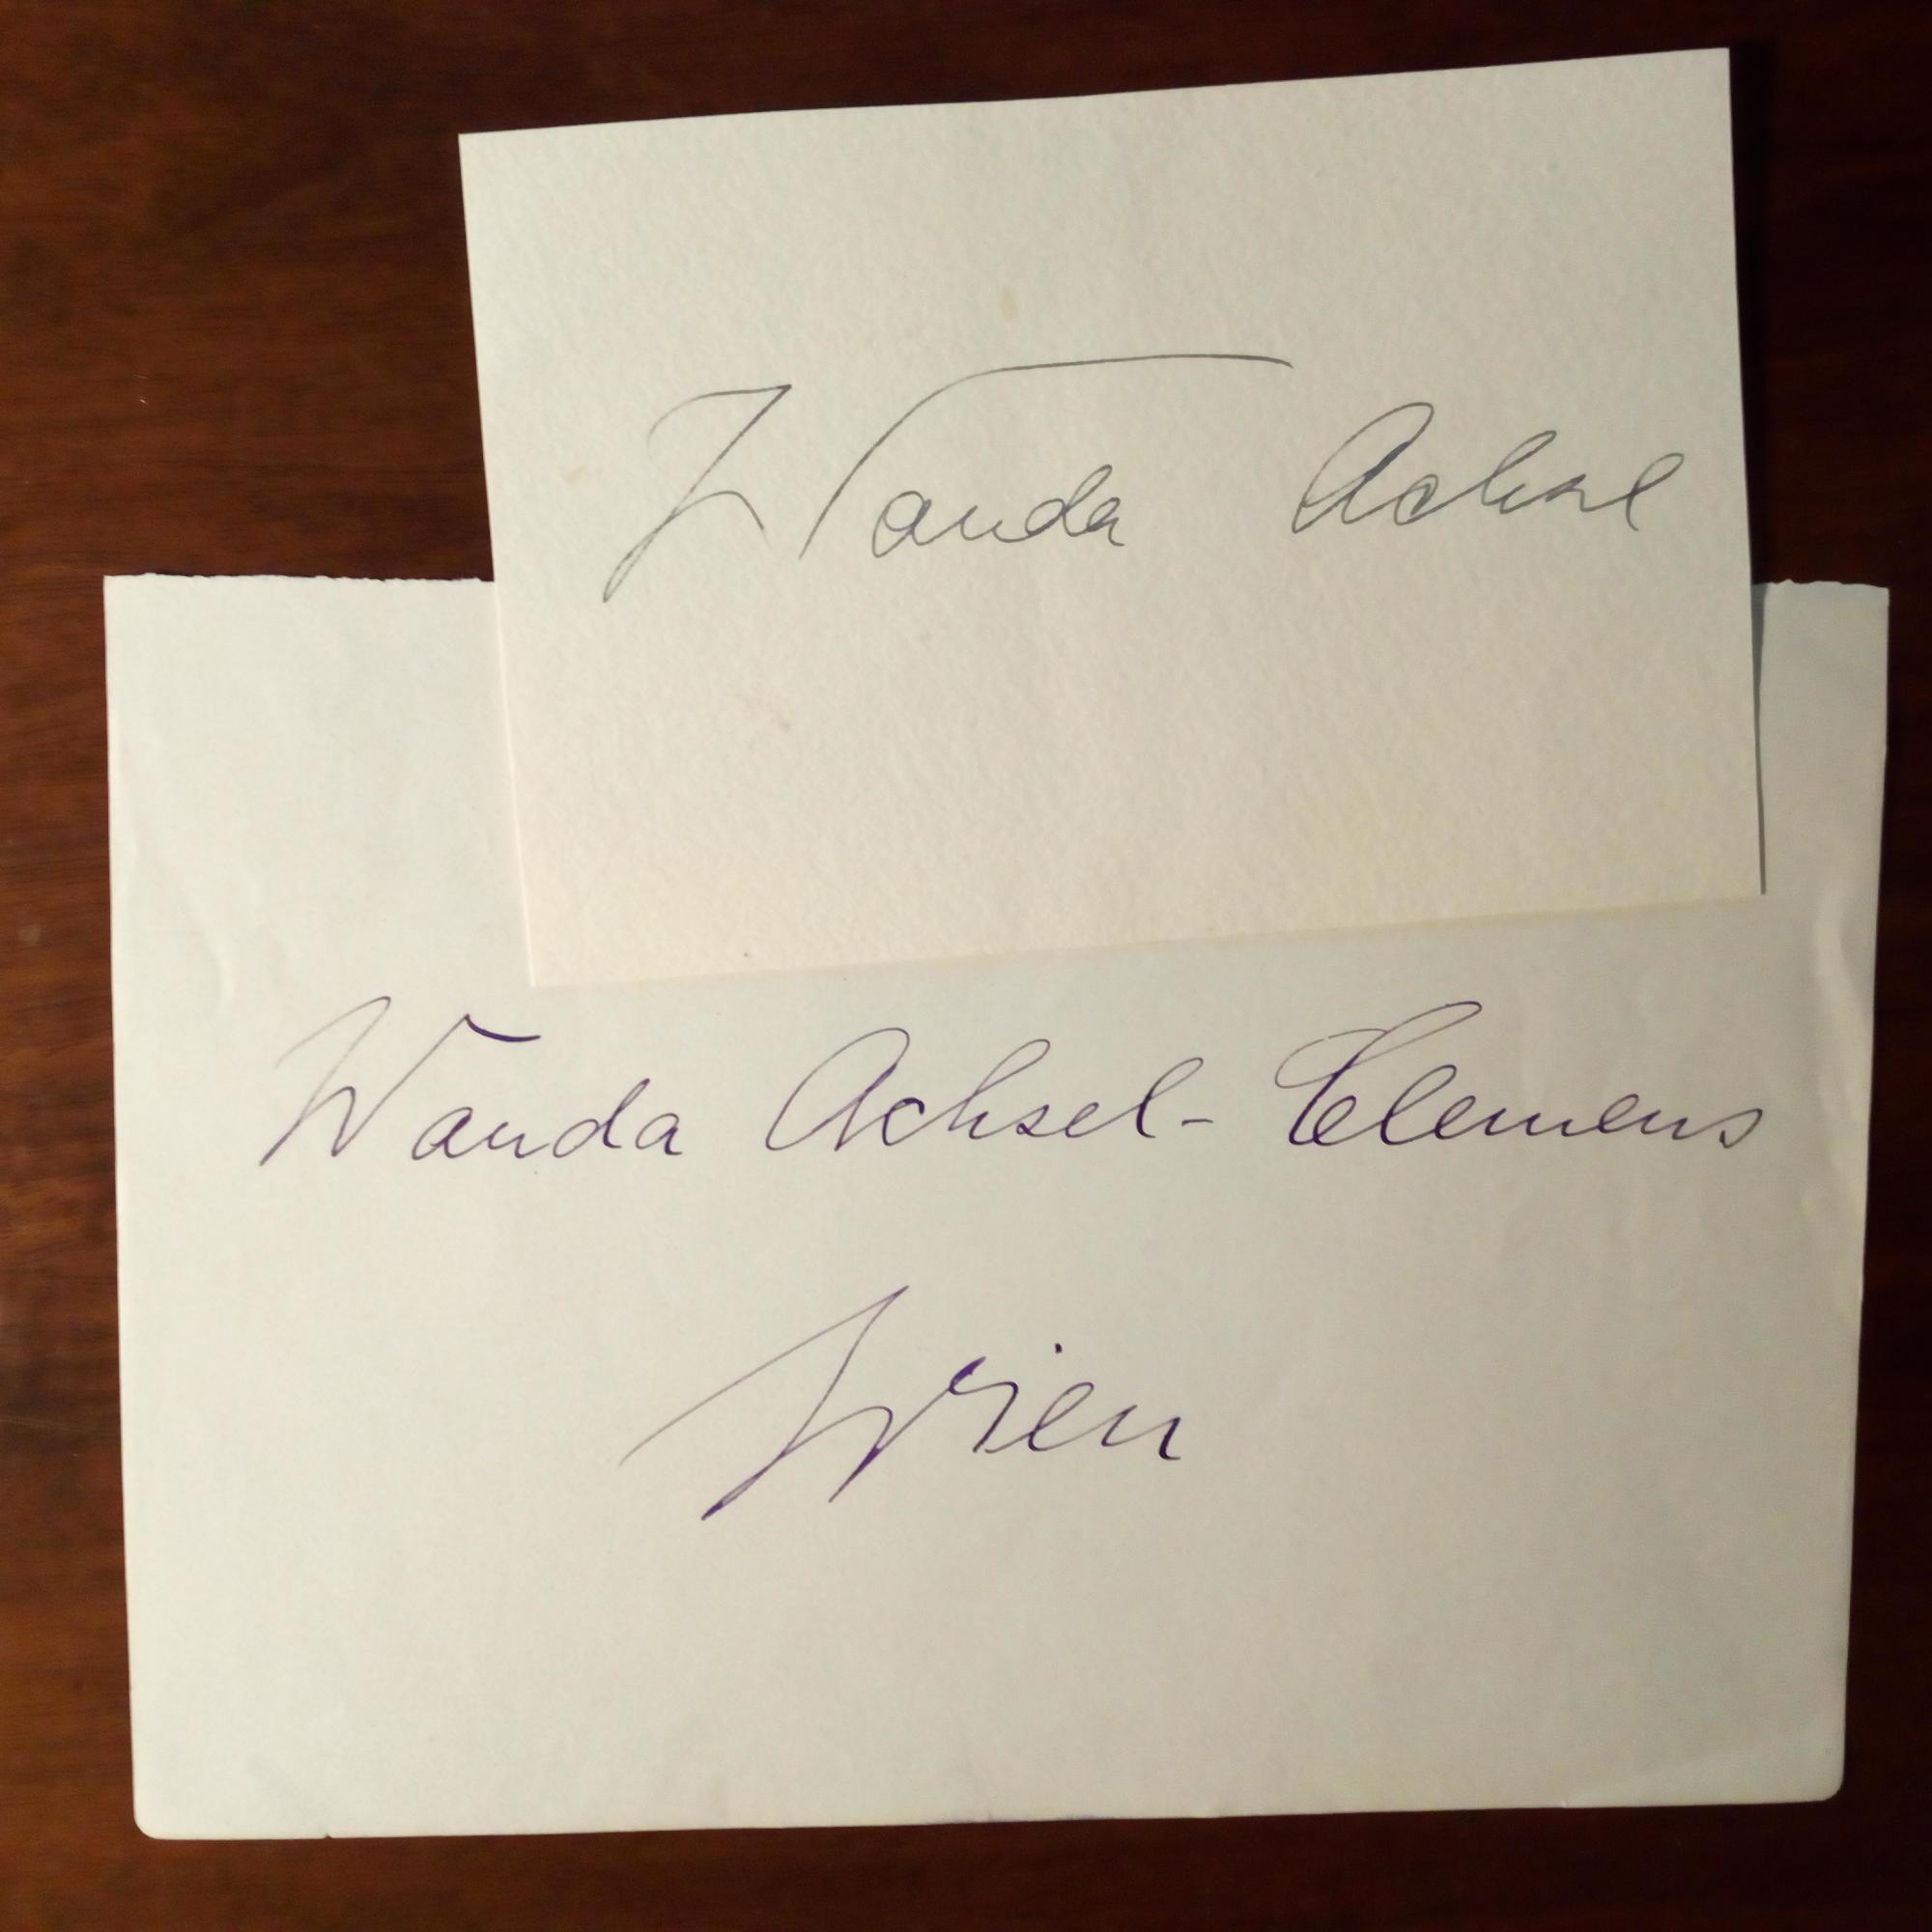 Wanda Achsel
Wanda Achsel-Clemens
Wien